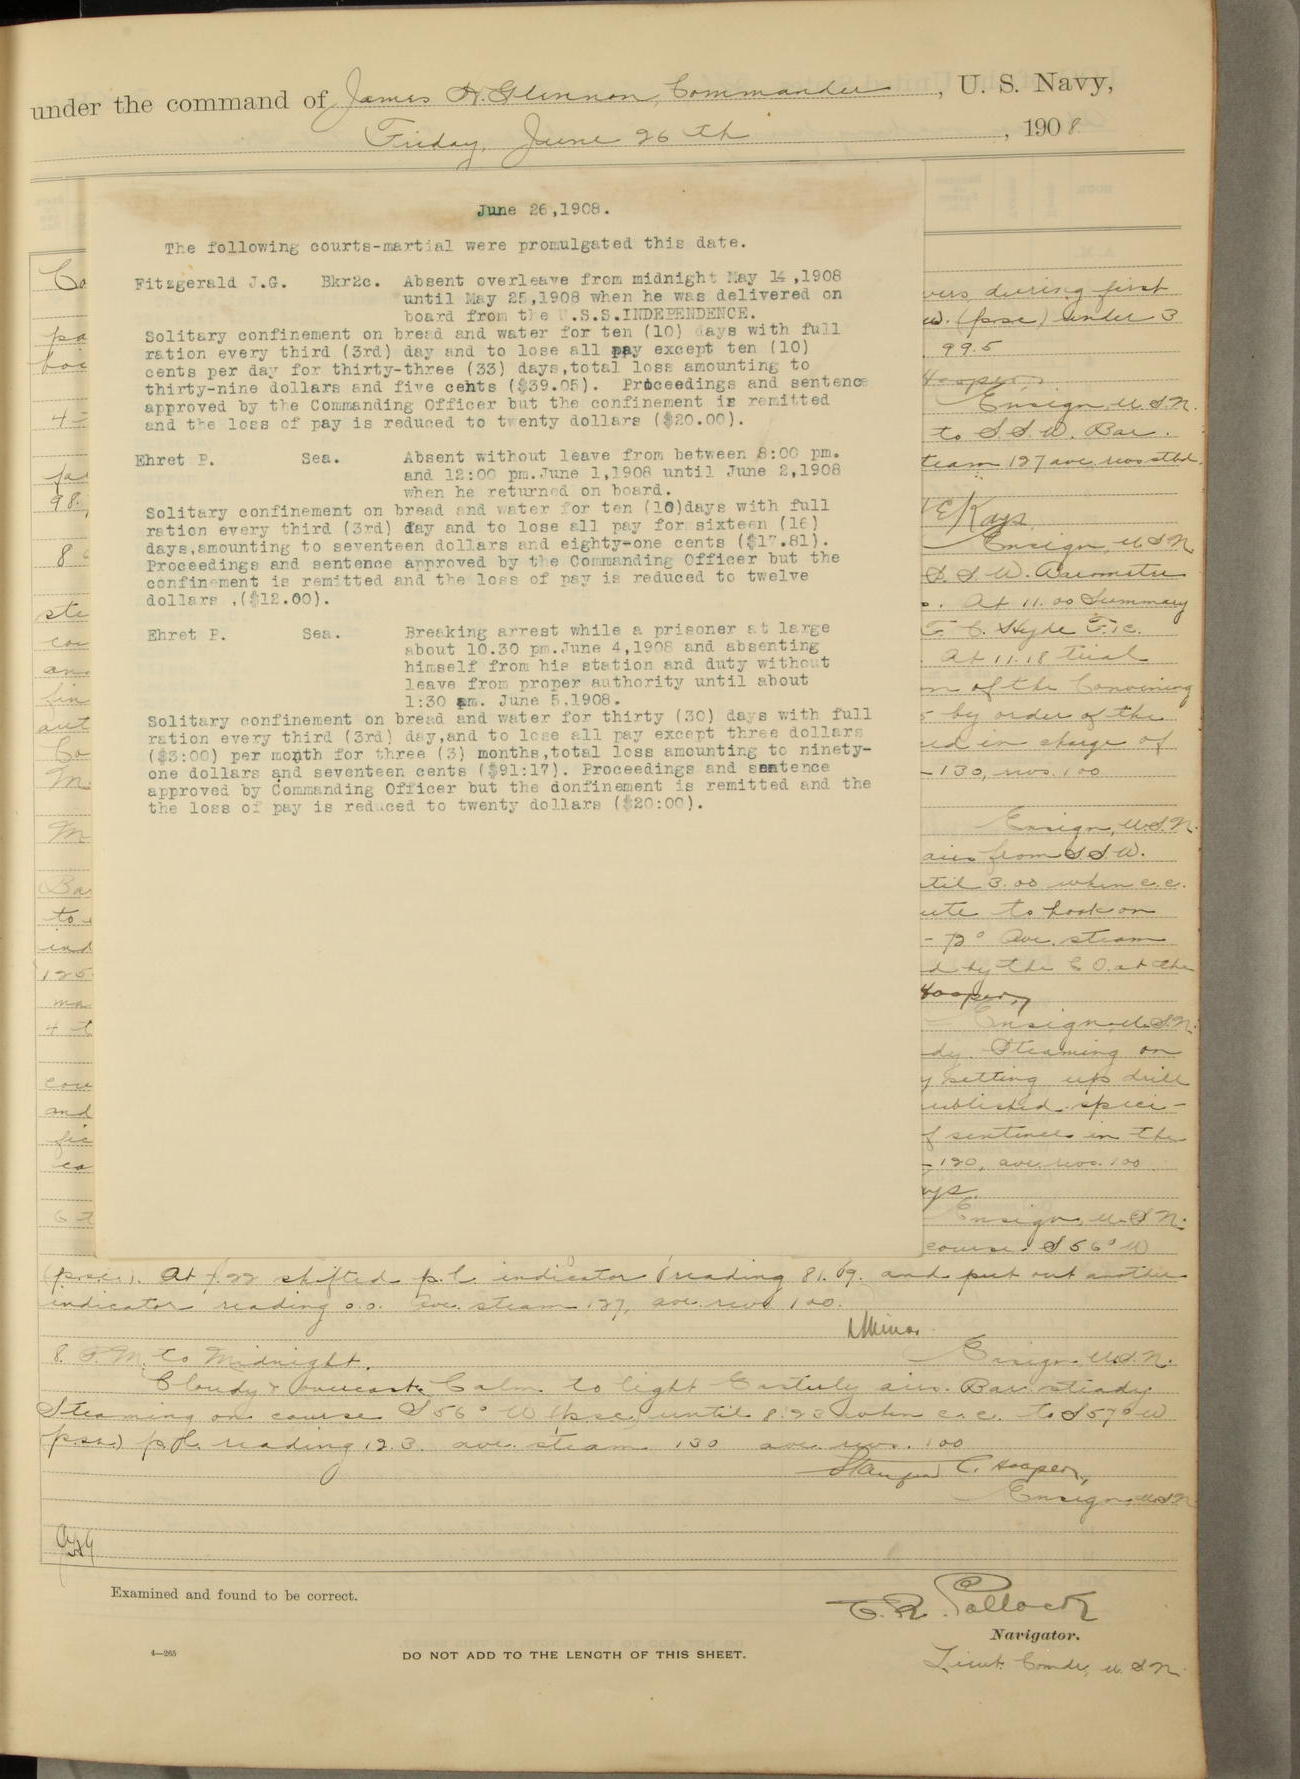 under the command of James H. Glennon, Commander, U. S. Navy,
Friday, June 26th, 1908.
June 26,1908.
The following courts-martial were promulgated this date.
Fitzgerald J.G. Bkr2c. Absent overleave from midnight May 14,1908
until May 25,1908 when he was delivered on
board from the U.S.S.INDEPENDENCE.
Solitary confinement on bread and water for ten (10) days with full
ration every third (3rd) day and to lose all pay except ten (10)
cents per day for thirty-three (33) days,total loss amounting to
thirty-nine dollars and five cents ($39.05). Proceedings and sentence
approved by the Commanding Officer but the confinement is remitted
and the loss of pay is reduced to twenty dollars ($20.00).
Ehret P. Sea. Absent without leave from between 8:00 pm.
and 12:00 pm.June 1,1908 until June 2,1908
when he returned on board.
Solitary confinement on bread and water for ten (10)days with full
ration every third (3rd) day and to lose all pay for sixteen (16)
days,amounting to seventeen dollars and eighty-one cents ($17.81).
Proceedings and sentence approved by the Commanding Officer but the
confinement is remitted and the loss of pay is reduced to twelve
dollars ,($12.00).
Ehret P. Sea. Breaking arrest while a prisoner at large
about 10.30 pm.June 4,1908 and absenting
himself from his station and duty without
leave from proper authority until about
1:30 am. June 5.1908.
Solitary confinement on bread and water for thirty (30) days with full
ration every third (3rd) day,and to lose all pay except three dollars
($3:00) per month for three (3) months,total loss amounting to ninety-
one dollars and seventeen cents ($91:17). Proceedings and sentence
approved by Commanding Officer but the confinement is remitted and the
the loss of pay is reduced to twenty dollars ($20:00).
during first
(psc) under 3
99.5
Hooper,
Ensign, U.S.N.
to S.S.W. Bar.
steam 127 ave. revs
Kays,
Ensign, U.S.N.
S.S.W. Barometer
At 11.00 Summary
C. Hyde F.1c.
At 11.18 trial
of the Convening
by order of the
in charge of
130, revs. 100
Ensign, U.S.N.
airs from S.S.W.
until 3.00 when c.c.
to hook on
72° Ave. steam
by the C.O. at the
Hooper,
Ensign, U.S.N.
Steaming on
setting up drill
published speci-
of sentences in the
120, ave. revs. 100
Ensign, U.S.N.
course S 56° W
(psc.). At 7.22 shifted p.l. indicator (reading 81.69. and put out another
indicator reading 0.0. Ave. steam 127, ave. revs 100.
8 P.M. to Midnight. Ensign U.S.N.
Cloudy & overcast. Calm to light Easterly airs. Bar. steady
Steaming on course S 56° W (psc) until 8.23 when c.c. to S 57° W
(psc.) p.l. reading 12.3. ave. steam 130 ave. revs. 100
Stanford C. Hooper,
Ensign, U.S.N.
Examined and found to be correct.
C. R. Pollock
Navigator.
Lieut. Comdr, U.S.N.
4—265
DO NOT ADD TO THE LENGTH OF THIS SHEET.